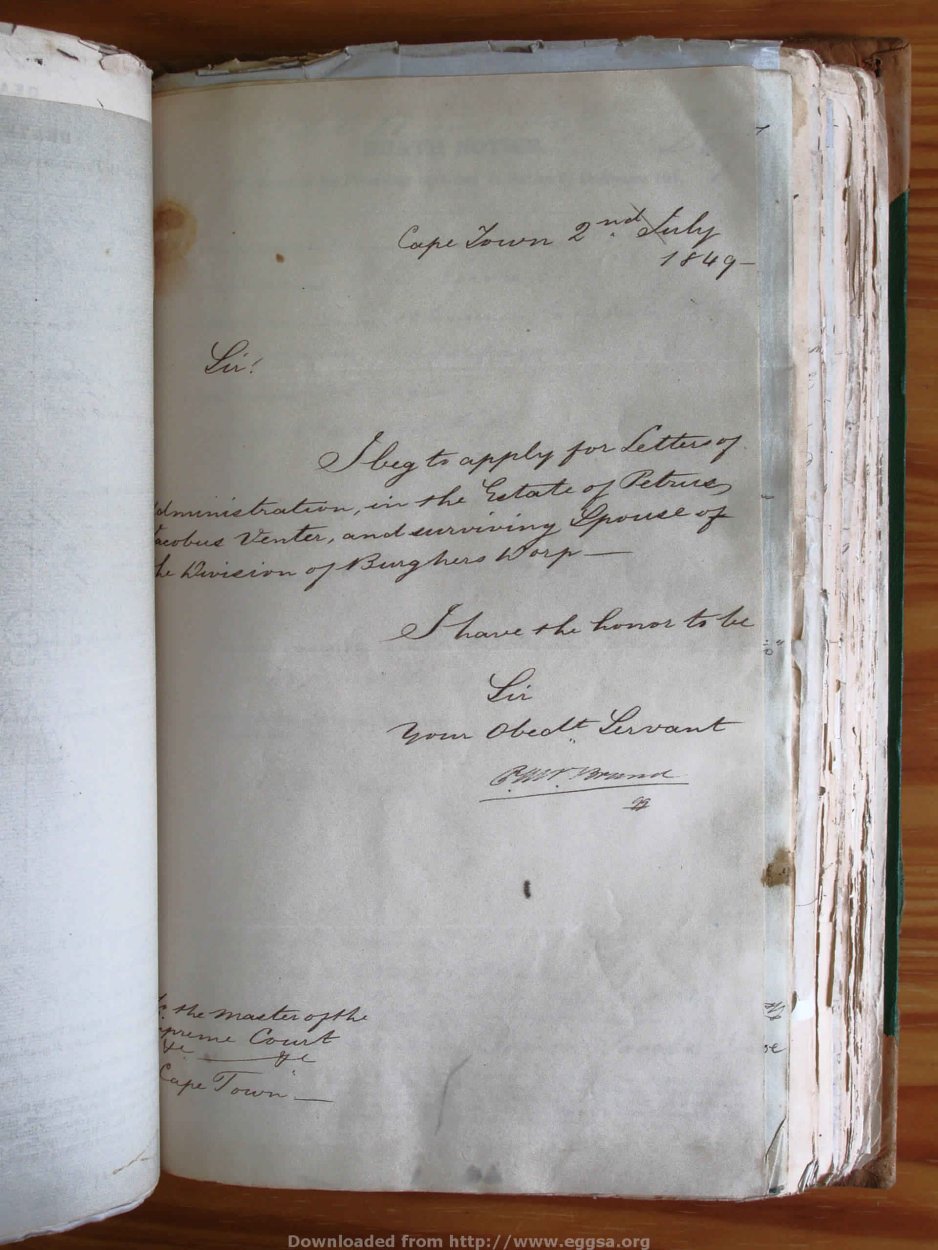 Cape Town 2nd July
1849 -
Sir!
I beg to apply for Letters of
dministration, in the Estate of Petrus
Jacobus Venter, and surviving Spouse of
he Division of Burghersdorp —
I have the honor to be
Sir
Your Obedt Servant
Brand
qq
To the Master of the
upreme Court
&c — &c
Cape Town —
Downloaded from http://www.eggsa.org